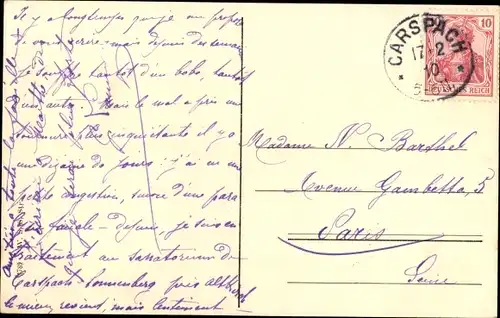 Il y a longtemps que je me propose
de vous écrire mais depuis des semaines
je souffre tantôt d'un bobo, tantôt
d'un autre. Mais le mal a pris une
tournure plus inquiétante il y a
une dizaine de jours: j'ai eu une
petite congestion, suivie d'une para
faciale - depuis, je suis en
traitement au sanatorium de
Carspach-Sonnenberg près Altkirch
le mieux revient, mais lentement.
CARSPACH
17 2
10
10
DEUTSCHES REICH
Madame N. Barthel
Avenue Gambetta, 5
Paris
Seine